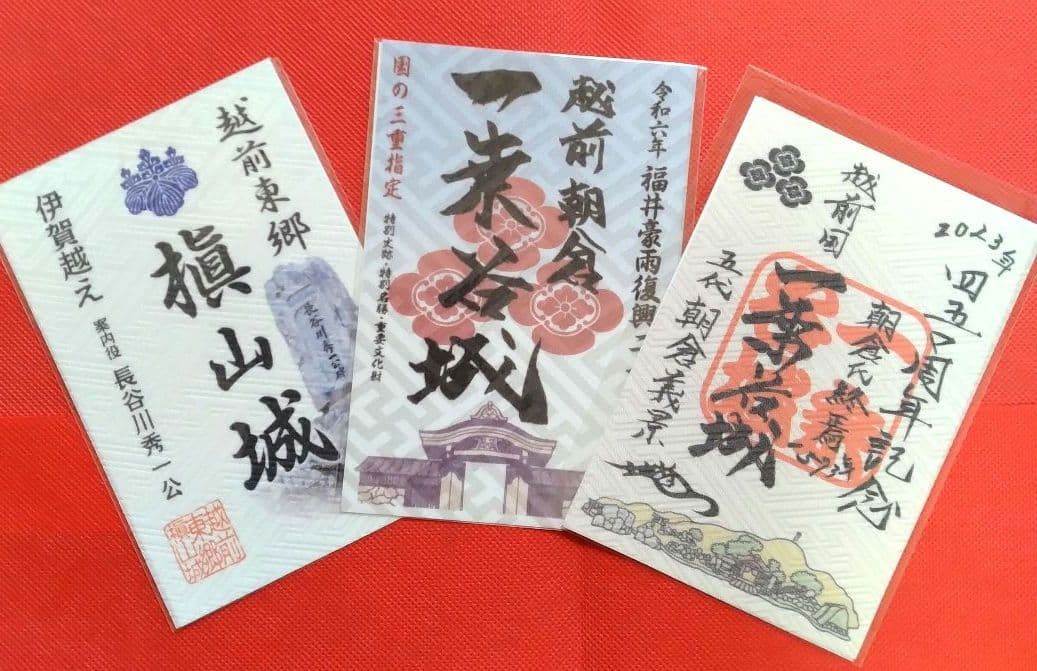 越前東郷
槇山城
伊賀越え 案内役 長谷川秀一公
越前
東郷
槇山城
令和六年 福井豪雨復興
越前朝倉
一乗谷城
国の三重指定
特別史跡・特別名勝・重要文化財
2023年 四五〇周年記念
朝倉氏終焉 1573年
一乗谷城
越前国
五代 朝倉義景